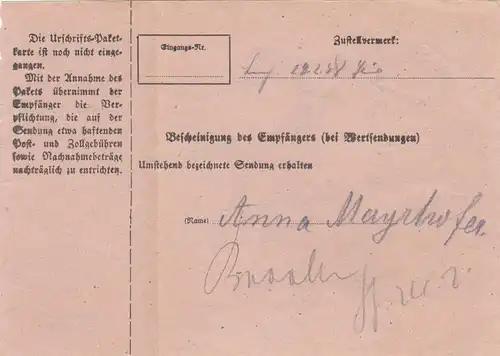 Die Urschrifts-Paket-
karte ist noch nicht einge-
gangen.
Mit der Annahme des
Pakets übernimmt der
Empfänger die Ver-
pflichtung, die auf der
Sendung etwa haftenden
Post- und Zollgebühren
sowie Nachnahmebeträge
nachträglich zu entrichten.
Eingangs-Nr.
Zustellvermerk:
Bescheinigung des Empfängers (bei Wertsendungen)
Umstehend bezeichnete Sendung erhalten
(Name) Anna Mayrhofer